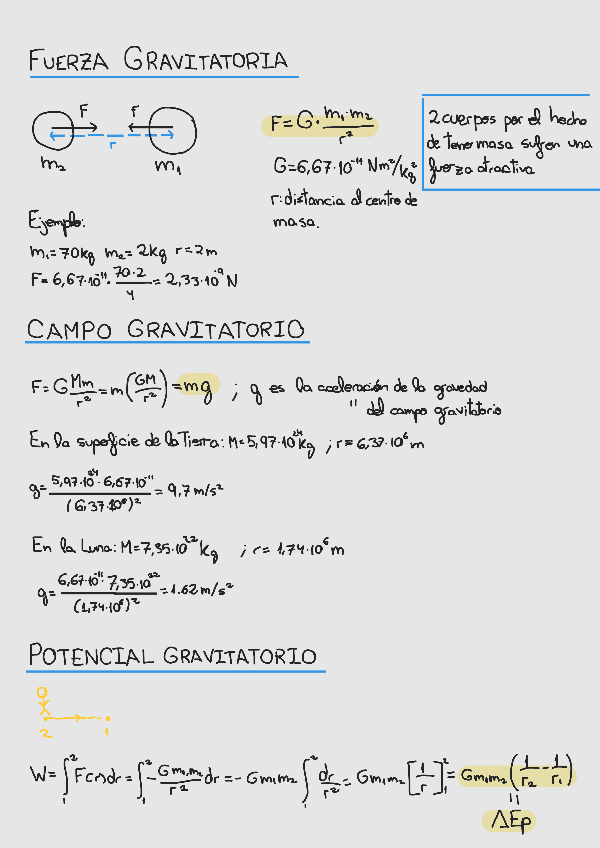 FUERZA GRAVITATORIA
F F
r
m₂ m₁
F=G·m₁·m₂/r²
G=6,67·10⁻¹¹ Nm²/kg²
r: distancia al centro de
masa.
2 cuerpos por el hecho
de tener masa sufren una
fuerza atractiva
Ejemplo:
m₁=70kg m₂=2kg r=2m
F=6,67·10⁻¹¹·70·2/4=2,33·10⁻⁹ N
CAMPO GRAVITATORIO
F=G Mm/r²=m(GM/r²)=mg ; g es la aceleración de la gravedad
" del campo gravitatorio
En la superficie de la Tierra: M=5,97·10²⁴kg ; r=6,37·10⁶m
g=5,97·10²⁴·6,67·10⁻¹¹/(6,37·10⁶)²=9,7m/s²
En la Luna: M=7,35·10²²kg ; r=1,74·10⁶m
g=6,67·10⁻¹¹·7,35·10²²/(1,74·10⁶)²=1.62m/s²
POTENCIAL GRAVITATORIO
2 1
W=∫₁²F(r)dr=∫₁²-Gm₁m₂/r² dr=-Gm₁m₂∫₁²dr/r²=Gm₁m₂[1/r]₁²=Gm₁m₂(1/r₂-1/r₁)
=
ΔEp